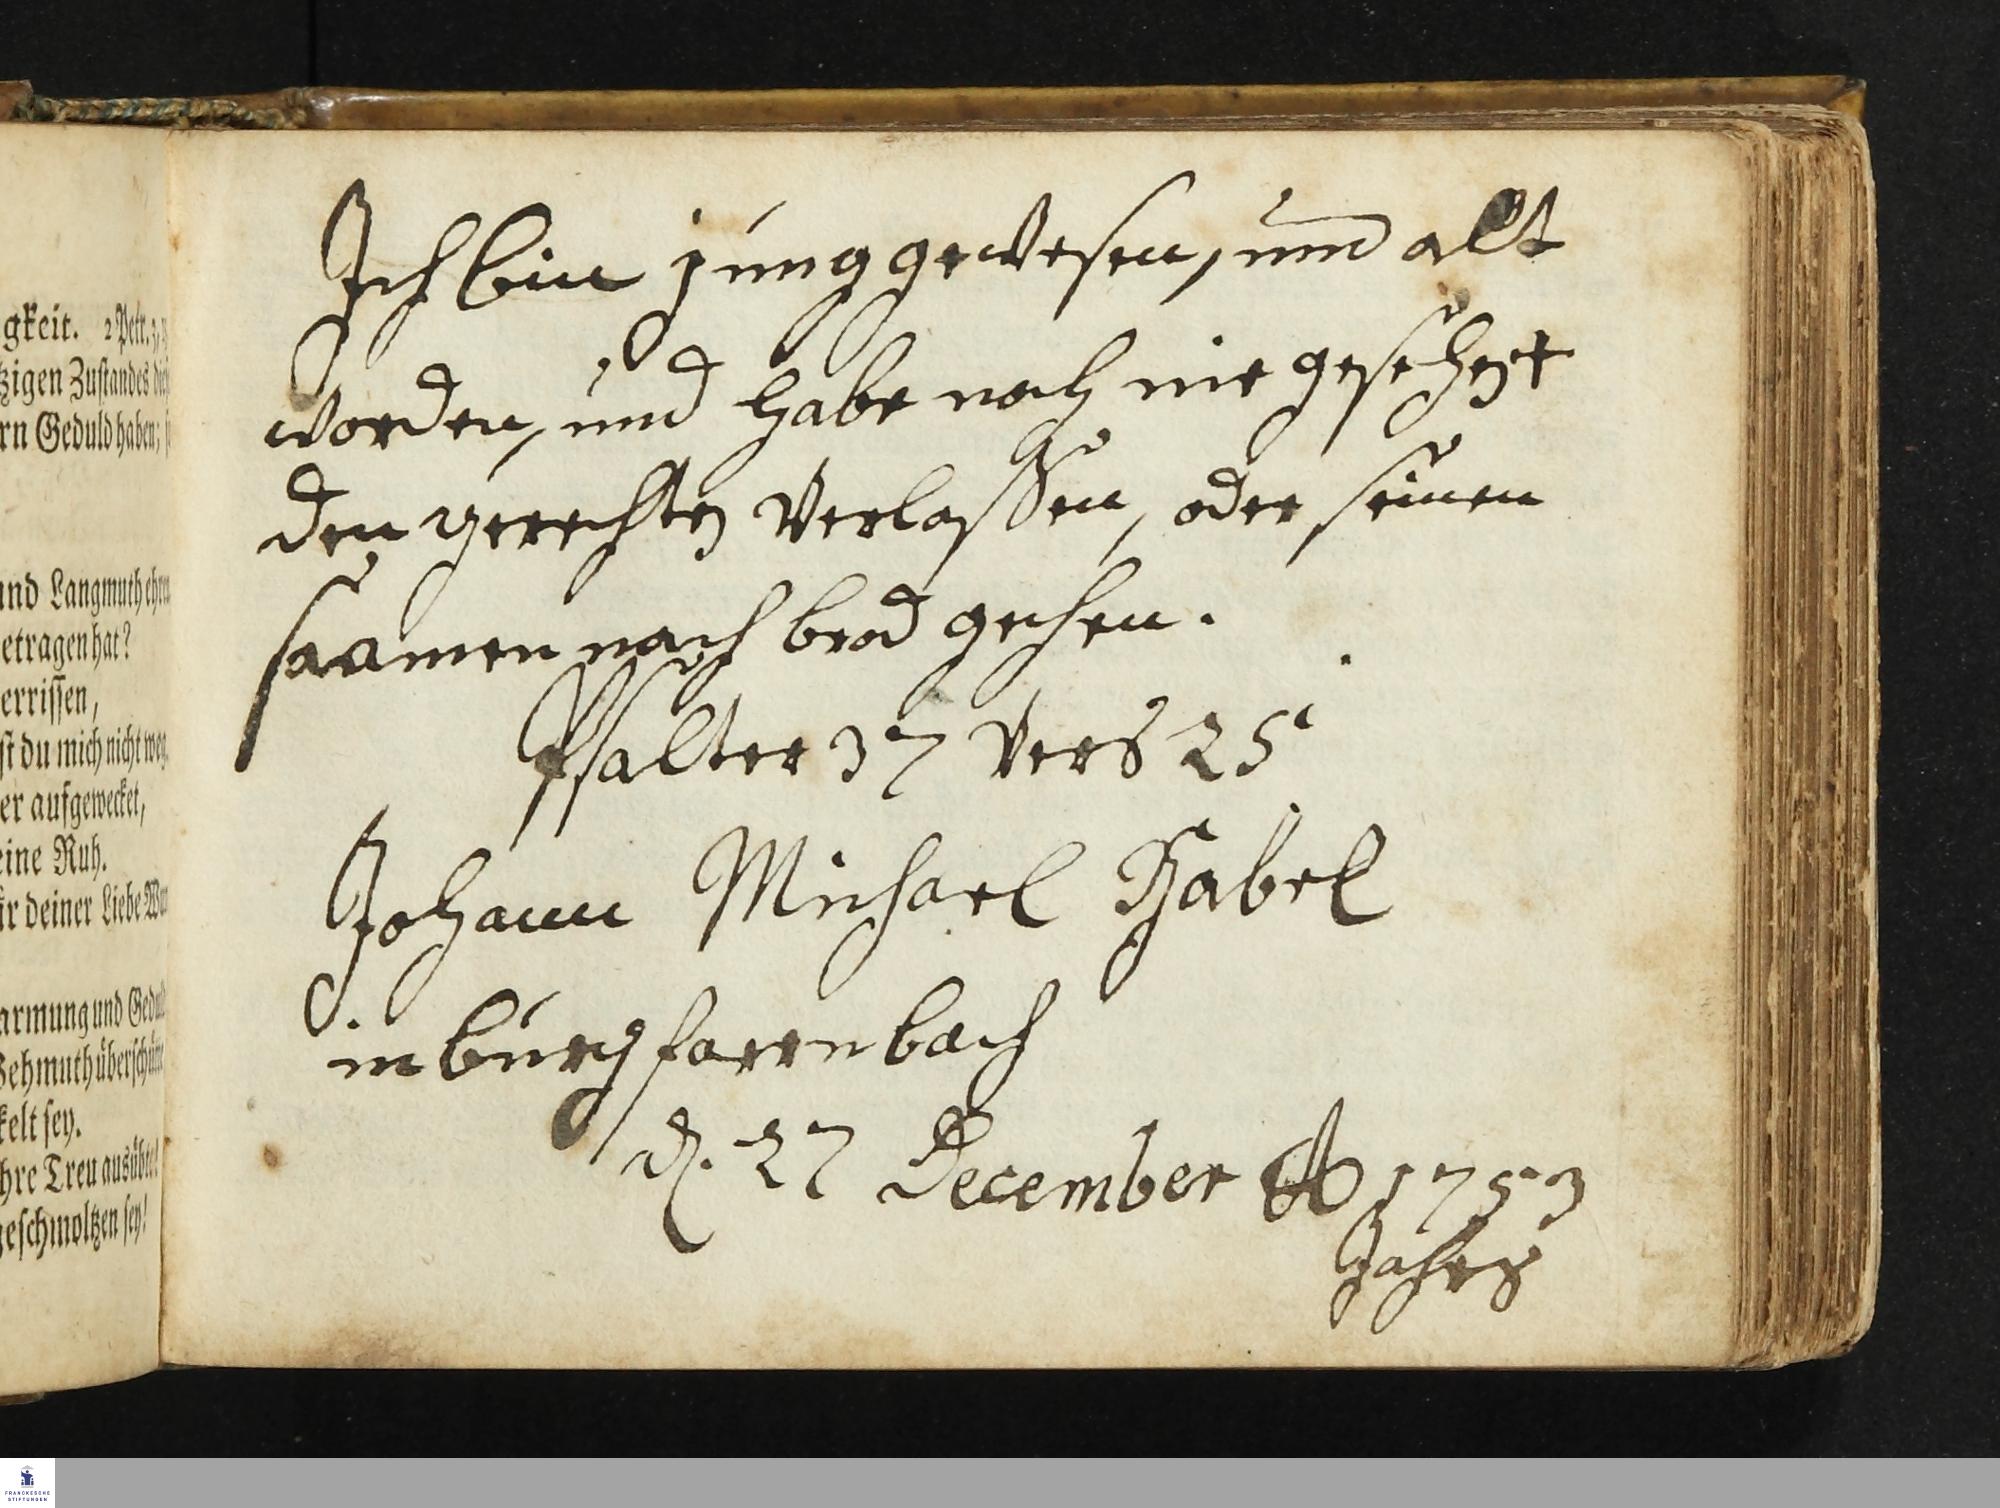 gkeit. 2 Petr. 3,
tzigen Zustandes
rn Geduld haben;
und Langmuth
etragen hat?
errissen,
st du mich nicht weg
er aufgewecket,
eine Ruh.
ür deiner Liebe
armung und
Wehmuth
kelt sey.
hre Treu ausübte!
geschmoltzen sey!
Ich bin jung gewesen, und alt
worden, und habe noch nie gesehen
den gerechten Verlassen, oder seinen
saamen nach brod gehen.
Psalter 37 Vers 25
Johann Michael Habel
in burg farrnbach
d. 27 December Ao 1753
Jahrs
FRANCKESCHE
STIFTUNGEN